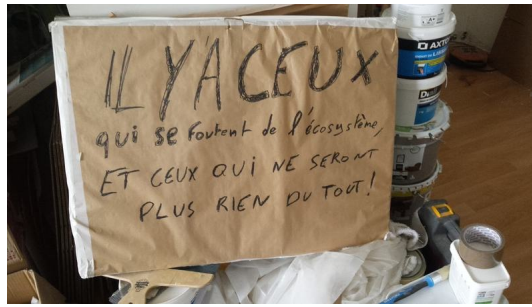 IL Y A CEUX
qui se foutent de l'écosystème,
ET CEUX QUI NE SERONT
PLUS RIEN DU TOUT !
AXTON